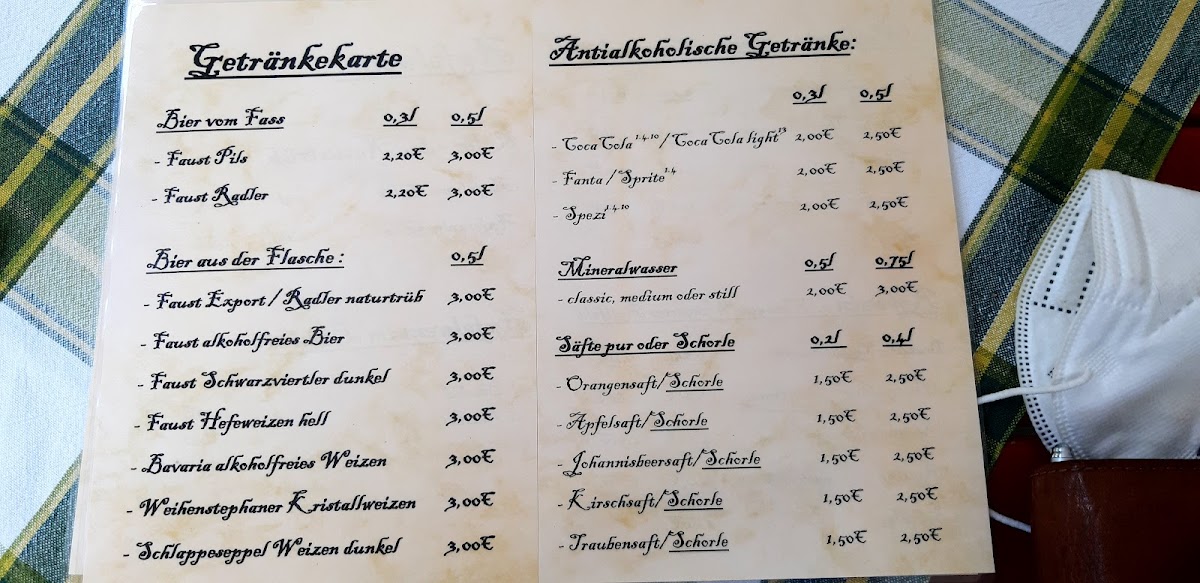 Getränkekarte
Bier vom Fass 0,3l 0,5l
- Faust Pils 2,20€ 3,00€
- Faust Radler 2,20€ 3,00€
Bier aus der Flasche : 0,5l
- Faust Export / Radler naturtrüb 3,00€
- Faust alkoholfreies Bier 3,00€
- Faust Schwarzviertler dunkel 3,00€
- Faust Hefeweizen hell 3,00€
- Bavaria alkoholfreies Weizen 3,00€
- Weihenstephaner Kristallweizen 3,00€
- Schlappeseppel Weizen dunkel 3,00€
Antialkoholische Getränke:
0,3l 0,5l
- Coca Cola 1.4.10 / Coca Cola light 13 2,00€ 2,50€
- Fanta / Sprite 1.4 2,00€ 2,50€
- Spezi 1.4.10 2,00€ 2,50€
Mineralwasser 0,5l 0,75l
- classic, medium oder still 2,00€ 3,00€
Säfte pur oder Schorle 0,2l 0,4l
- Orangensaft/Schorle 1,50€ 2,50€
- Apfelsaft/Schorle 1,50€ 2,50€
- Johannisbeersaft/Schorle 1,50€ 2,50€
- Kirschsaft/Schorle 1,50€ 2,50€
- Traubensaft/Schorle 1,50€ 2,50€